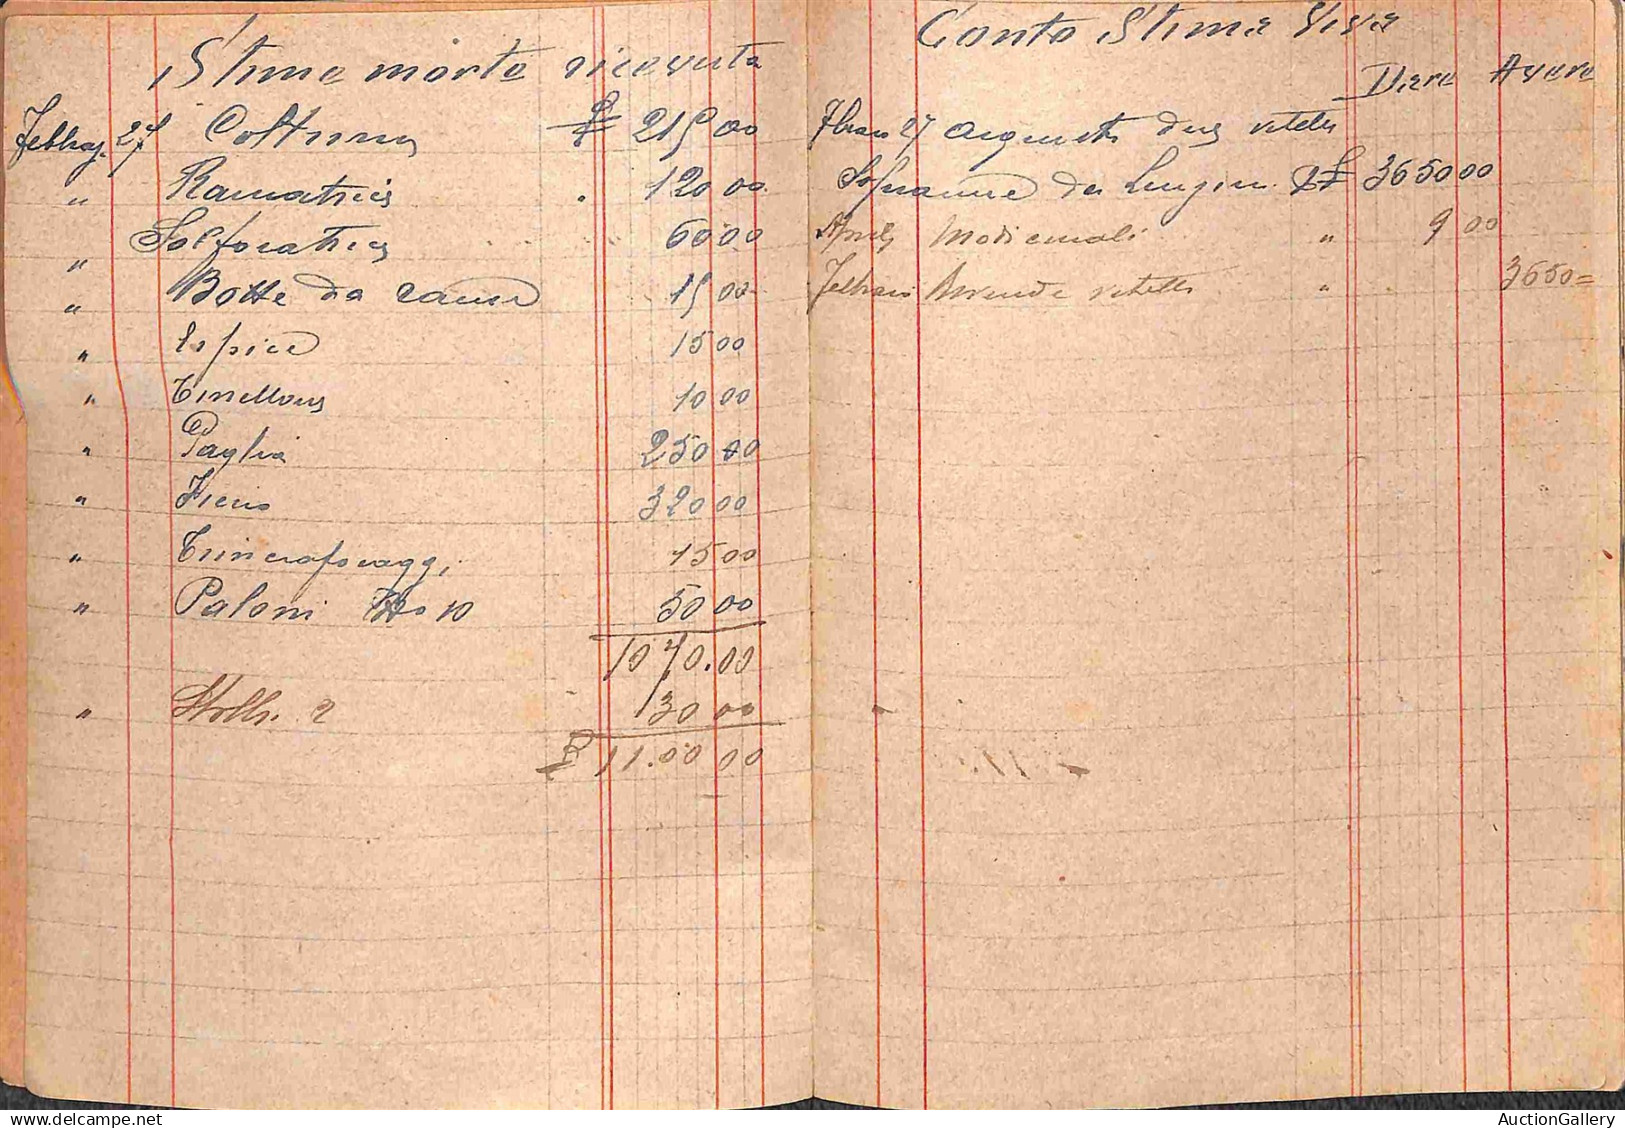 Stime morte ricevuta
Febbraj. 27 Colturna £ 215 00
" Ramatrici . 120 00
" Solforatrici 60 00
" Botte da 15 00
" 15 00
" Tinellone 10 00
" Paglia 250 00
" Fieno 320 00
" Trinciaforaggi 15 00
" Paloni No 10 50 00
1070.00
" 2 30 00
£ 11.00 00
Conto Stima Viva
Dare Avere
27 due vitelle
da £ 3650 00
Aprile Medicinali " 9 00
Febbraio vitelle " 3650=
AuctionGallery